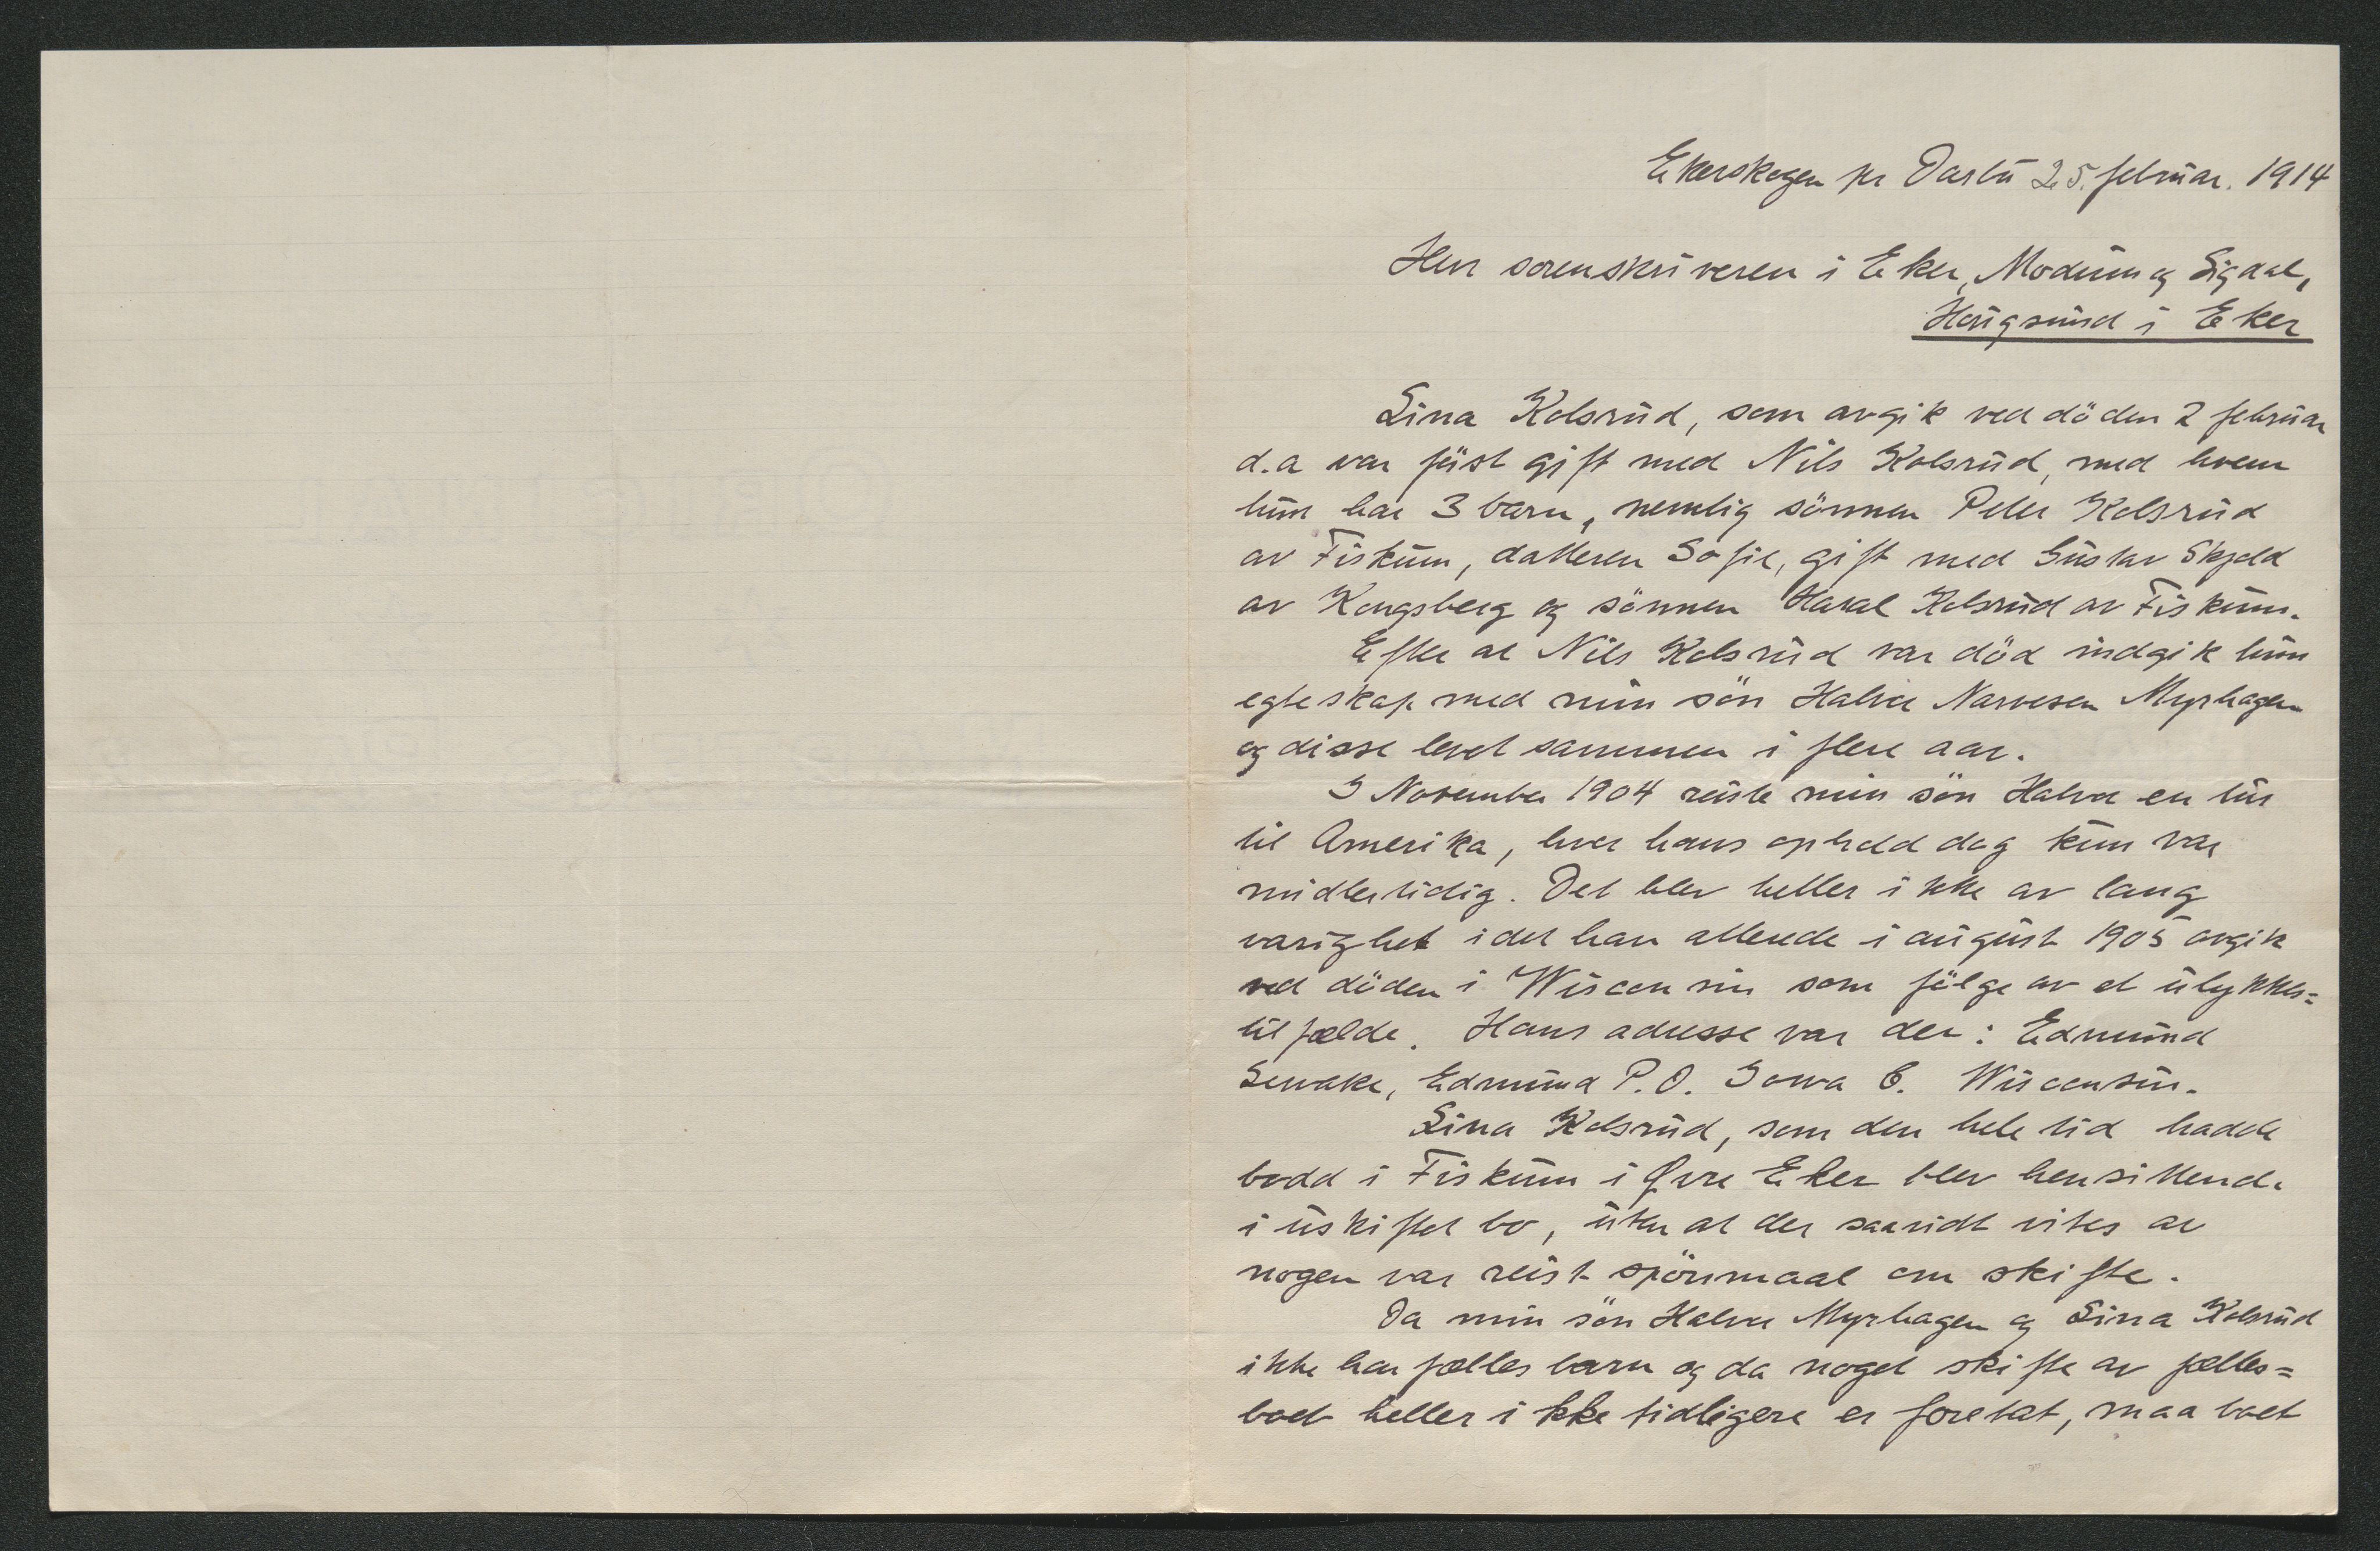 Ekerskogen pr Darbu 25. februar. 1914
Herr sorenskriveren i Eker, Modum og Sigdal,
Hougsund i Eker
Lina Kolsrud, som avgik ved döden 2 februar
d.a var först gift med Nils Kolsrud, med hvem
hun har 3 barn, nemlig sönnen Peter Kolsrud
av Fiskum, datteren Sofie, gift med Gustav Skjold
av Kongsberg og sönnen Haral Kolsrud av Fiskum.
Efter at Nils Kolsrud var död indgik hun
egteskap med min sön Halvor Narvesen Myrhagen
og disse levet sammen i flere aar.
I November 1904 reiste min sön Halvor en tur
til Amerika, hvor hans ophold dog kun var
midlertidig. Det blev heller ikke av lang
varighet idet han allerede i august 1905 avgik
ved döden i Wisconsin som fölge av et ulykkes=
tilfælde. Hans adresse var der: Edmund
Edmund P.O. Iowa C. Wisconsin.
Lina Kolsrud, som den hele tid hadde
bodd i Fiskum i Øvre Eker blev hensittende
i uskiftet bo, uten at der saavidt vites av
nogen var reist spörsmaal om skifte.
Da min sön Halvor Myrhagen og Lina Kolsrud
ikke har fælles barn og da noget skifte av fælles=
boet heller ikke tidligere er foretat, maa boet